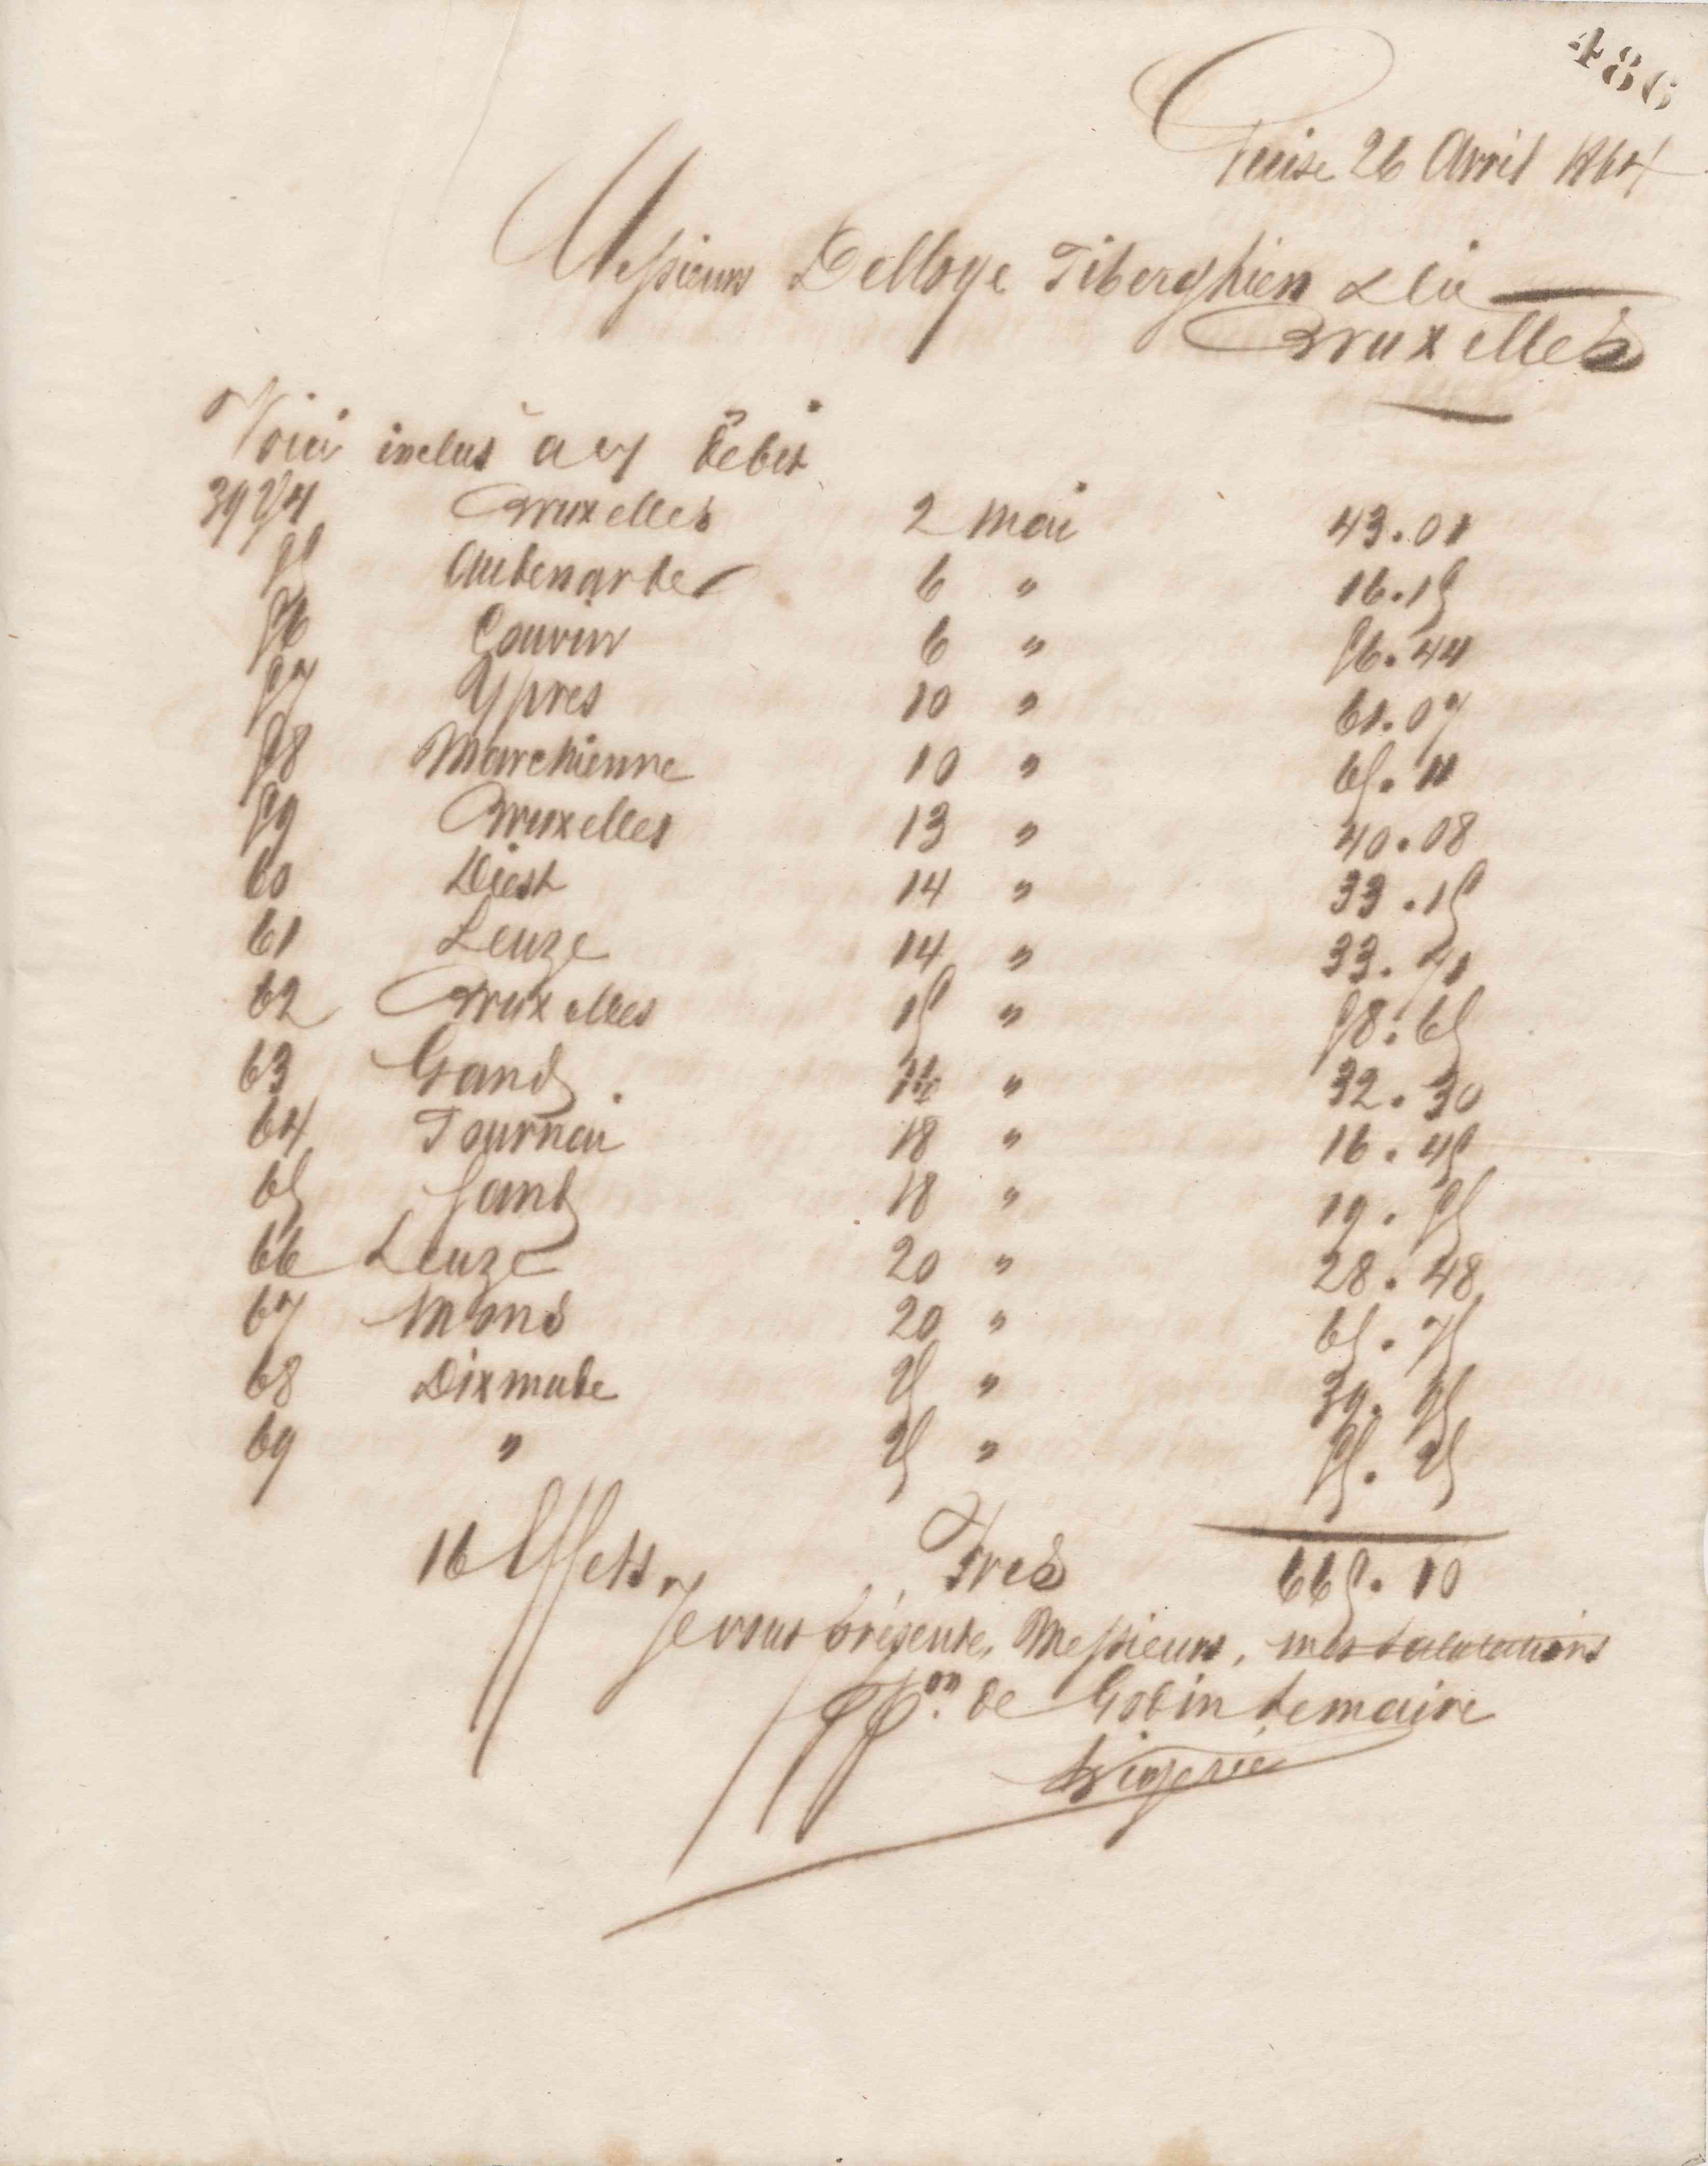 486
Guise 26 Avril 1864
Messieurs Delloye Tiberghien & Cie
Bruxelles
Voici inclus à v/ débit
3954 Bruxelles 2 mai 43.01
55 Audenarde 6 " 16.15
56 Couvin 6 " 56.44
57 Ypres 10 " 61.07
58 Marchienne 10 " 65.11
59 Bruxelles 13 " 40.08
60 Diest 14 " 33.15
61 Leuze 14 " 33.71
62 Bruxelles 15 " 58.65
63 Gand " 32.30
64 Tournai 18 " 16.45
65 Gand 18 " 19.55
66 Leuze 20 " 28.48
67 Mons 20 " 65.75
68 Dixmude 25 " 39.95
69 " 25 " 55.25
16 Effets. Frcs 665.10
Je vous présente, Messieurs, mes salutations
ppon. de Godin Lemaire